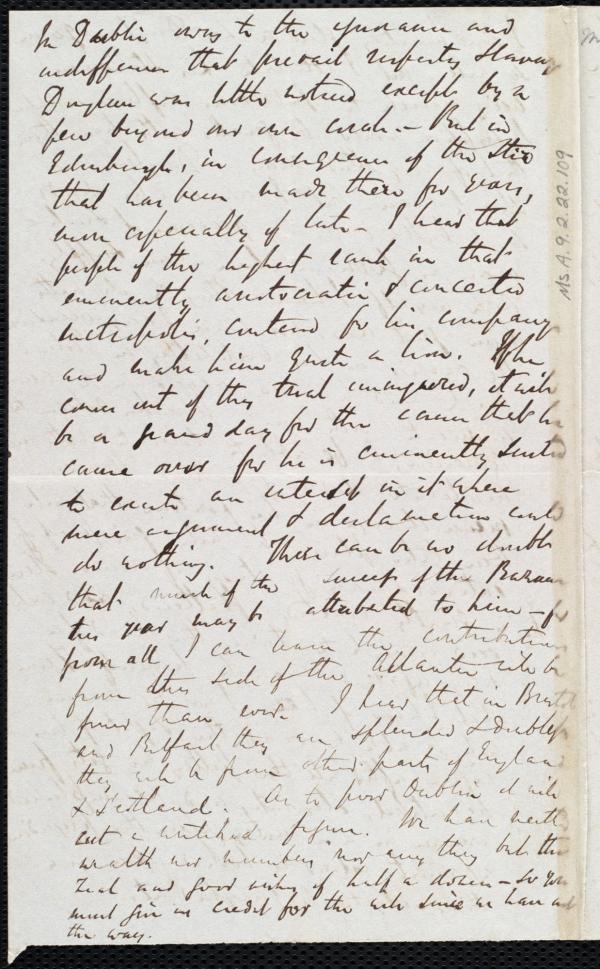 In Dublin owing to the ignorance and
indifference that prevail respecting Slavery
Douglass was little noticed except by a
few beyond our own circle. — But in
Edinburgh, in consequence of the Stir
that has been made there for years,
more especially of late — I hear that
people of the highest rank in that
eminently aristocratic & conceited
metropolis, contend for his company
and make him quite a lion. If he
comes out of this trial uninjured, it will
be a grand day for the cause that he
came over for he is eminently suited
to create an interest in it where
mere argument & declamation could
do nothing. There can be no doubt
that much of the success of the Bazaar
this year may be attributed to him — for
from all I can learn the contributions
from this side of the Atlantic will be
finer than ever. I hear that in Bristol
and Belfast they are splendid & doubtless
they will be from other parts of England
& Scotland. As to poor Dublin it will
cut a wretched figure. We have neither
wealth nor numbers nor any thing but the
zeal and good wishes of half a dozen — so you
must give us credit for the will since we have not
the way.
Ms A.9.2.22.109